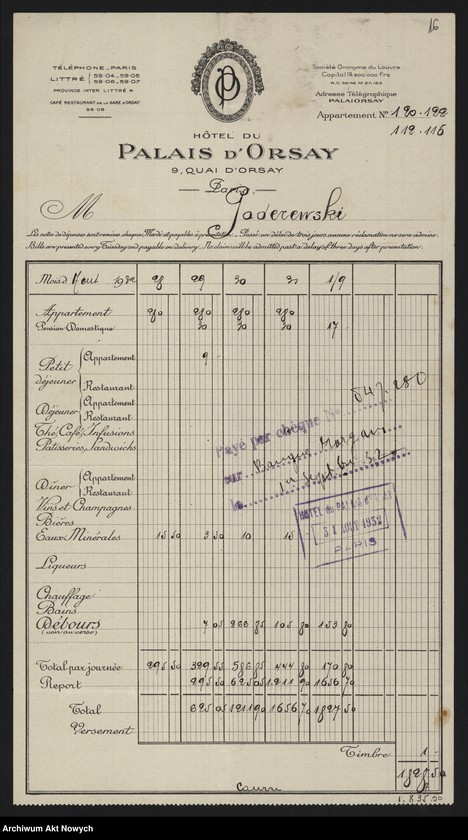 16
TÉLÉPHONE-PARIS
LITTRÉ { 59-04_59-05
59-06_59-07
PROVINCE INTER LITTRÉ
CAFÉ RESTAURANT DE LA GARE D'ORSAY
59-08
Société Anonyme du Louvre
Capital
Adresse Télégraphique
PALAIORSAY
Appartement No 190.192
112.115
HÔTEL DU
PALAIS D'ORSAY
9, QUAI D'ORSAY
Paris
M Paderewski
Les notes de dépenses sont remises chaque Mardi et payables à présentation. Passé un délai de trois jours aucune réclamation ne sera admise.
Bills are presented every Tuesday and payable on delivery. No claim will be admitted past a delay of three days after presentation.
Mois d'Aout 1932 28 29 30 31 1/9
Appartement 280 280 280 280
Pension Domestique 30 30 30 17
Petit déjeuner { Appartement 9
Restaurant
Déjeuner { Appartement
Restaurant
Thé, Café, Infusions
Pâtisseries, Sandwichs
Payé par chèque No 547.280
sur Banque Morgan
le 1er Septbre 32
Dîner { Appartement
Restaurant
Vins et Champagnes
Bières
Eaux Minérales 15 50 3 50 10 15
HOTEL DU PALAIS D'ORSAY
31 AOUT 1932
PARIS
Liqueurs
Chauffage
Bains
Débours 7 05 266 85 105 80 153 80
(voir au verso)
Total par journée 295 50 329 55 586 85 444 80 170 80
Report 295 50 625 05 1211 90 1656 70
Total 625 05 1211 90 1656 70 1827 50
Versement
Timbre 1 -
1828 50
1.835.50
Archiwum Akt Nowych